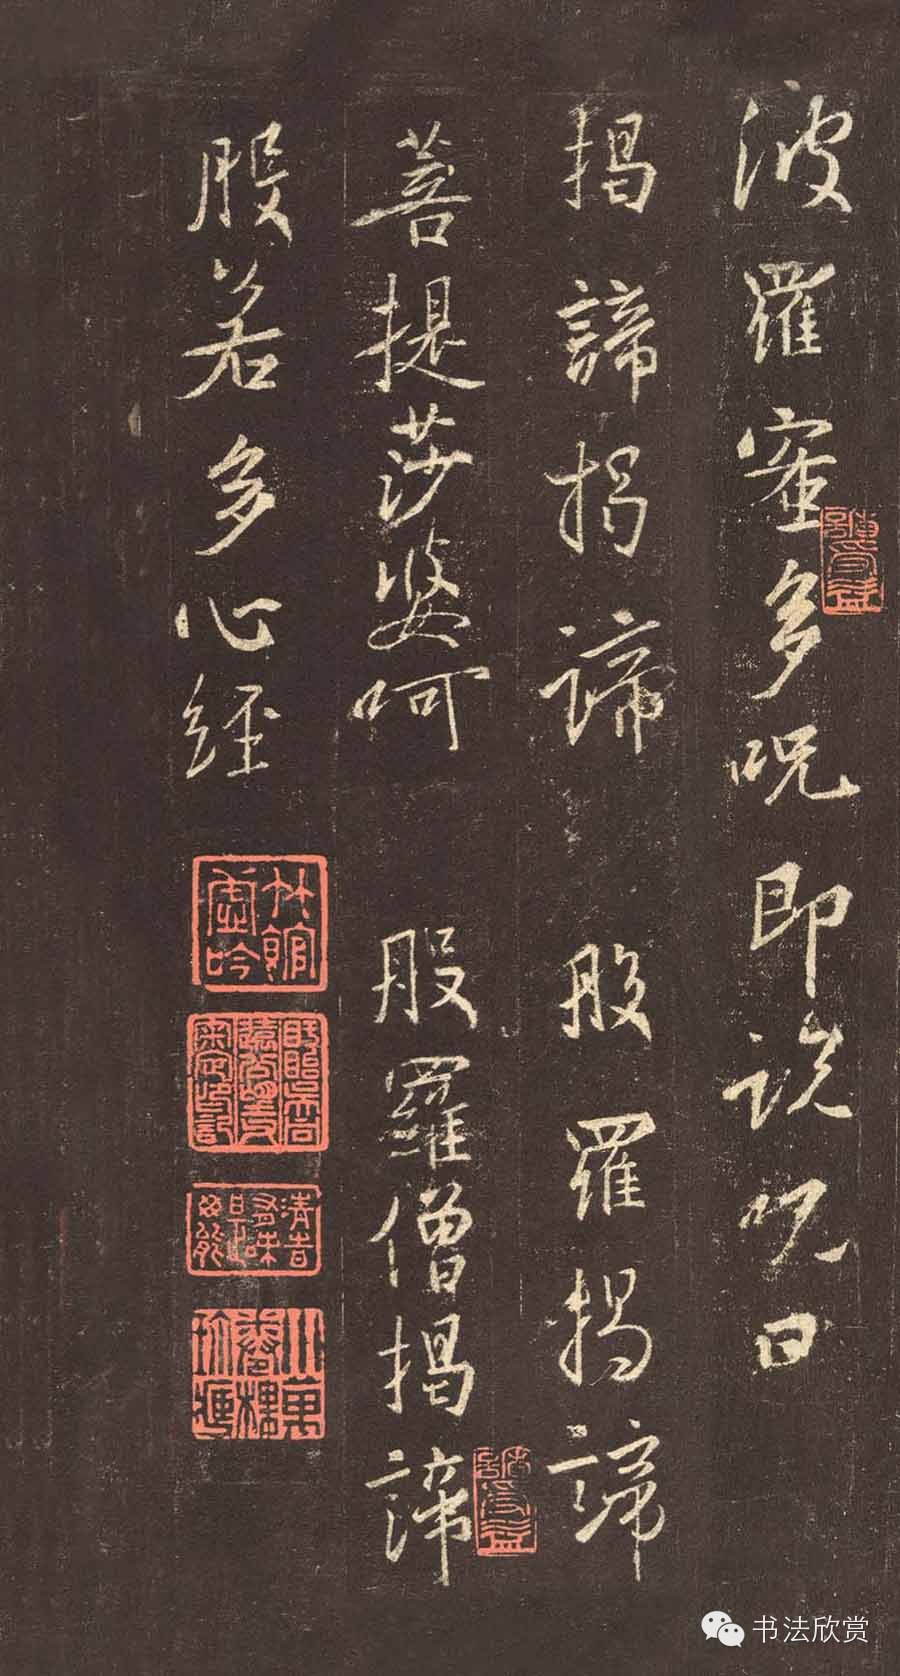 波羅蜜多呪即説呪曰
揭諦揭諦 般羅揭諦
菩提莎婆呵 般羅僧揭諦
般若多心経
书法欣赏